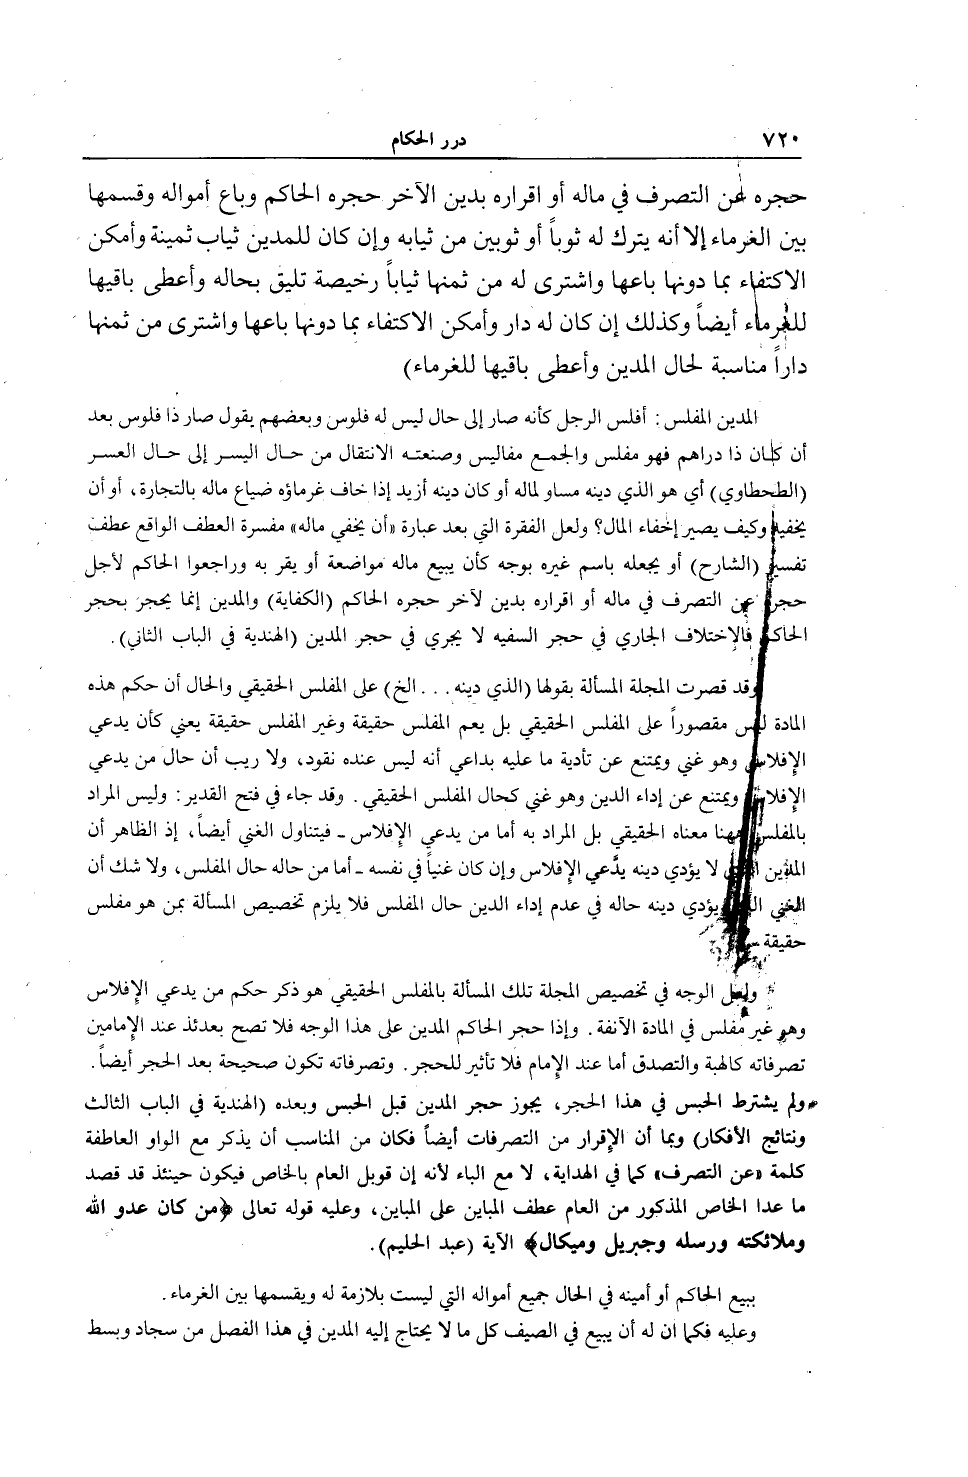 ٧٢٠
درر الحكام
حجره عن التصرف في ماله أو اقراره بدين الآخر حجره الحاكم وباع أمواله وقسمها
بين الغرماء إلا أنه يترك له ثوباً أو ثوبين من ثيابه وإن كان للمدين ثياب ثمينة وأمكن
الاكتفاء بما دونها باعها واشترى له من ثمنها ثياباً رخيصة تليق بحاله وأعطى باقيها
للغرماء أيضاً وكذلك إن كان له دار وأمكن الاكتفاء بما دونها باعها واشترى من ثمنها
داراً مناسبة لحال المدين وأعطى باقيها للغرماء)
المدين المفلس: أفلس الرجل كأنه صار إلى حال ليس له فلوس وبعضهم يقول صار ذا فلوس بعد
أن كان ذا دراهم فهو مفلس والجمع مفاليس وصنعته الانتقال من حال اليسر إلى حال العسر
(الطحطاوي) أي هو الذي دينه مساو لماله أو كان دينه أزيد إذا خاف غرماؤه ضياع ماله بالتجارة، أو أن
يخفيه وكيف يصير إخفاء المال؟ ولعل الفقرة التي بعد عبارة «أن يخفي ماله» مفسرة العطف الواقع عطف
تفسير (الشارح) أو يجعله باسم غيره بوجه كأن يبيع ماله مواضعة أو يقر به وراجعوا الحاكم لأجل
حجره عن التصرف في ماله أو اقراره بدين لآخر حجره الحاكم (الكفاية) والمدين إنما يحجر بحجر
الحاكم فالإختلاف الجاري في حجر السفيه لا يجري في حجر المدين (الهندية في الباب الثاني).
وقد قصرت المجلة المسألة بقولها (الذي دينه . . . الخ) على المفلس الحقيقي والحال أن حكم هذه
المادة ليس مقصوراً على المفلس الحقيقي بل يعم المفلس حقيقة وغير المفلس حقيقة يعني كأن يدعي
الإفلاس وهو غني ويمتنع عن تأدية ما عليه بداعي أنه ليس عنده نقود، ولا ريب أن حال من يدعي
الإفلاس ويمتنع عن إداء الدين وهو غني كحال المفلس الحقيقي. وقد جاء في فتح القدير: وليس المراد
بالمفلس ههنا معناه الحقيقي بل المراد به أما من يدعي الإفلاس ـ فيتناول الغني أيضاً، إذ الظاهر أن
المدين الذي لا يؤدي دينه يدَّعي الإفلاس وإن كان غنياً في نفسه ـ أما من حاله حال المفلس، ولا شك أن
الغني يؤدي دينه حاله في عدم إداء الدين حال المفلس فلا يلزم تخصيص المسألة بمن هو مفلس
حقيقة
ولعل الوجه في تخصيص المجلة تلك المسألة بالمفلس الحقيقي هو ذكر حكم من يدعي الإفلاس
وهو غير مفلس في المادة الآنفة. وإذا حجر الحاكم المدين على هذا الوجه فلا تصح بعدئذ عند الإمامين
تصرفاته كالهبة والتصدق أما عند الإمام فلا تأثير للحجر. وتصرفاته تكون صحيحة بعد الحجر أيضاً.
ولم يشترط الحبس في هذا الحجر، يجوز حجر المدين قبل الحبس وبعده (الهندية في الباب الثالث
ونتائج الأفكار) وبما أن الإقرار من التصرفات أيضاً فكان من المناسب أن يذكر مع الواو العاطفة
كلمة «عن التصرف» كما في الهداية، لا مع الباء لأنه إن قوبل العام بالخاص فيكون حينئذ قد قصد
ما عدا الخاص المذكور من العام عطف المباين على المباين، وعليه قوله تعالى ﴿من كان عدو الله
وملائكته ورسله وجبريل وميكال﴾ الآية (عبد الحليم).
يبيع الحاكم أو أمينه في الحال جميع أمواله التي ليست بلازمة له ويقسمها بين الغرماء.
وعليه فكما ان له أن يبيع في الصيف كل ما لا يحتاج إليه المدين في هذا الفصل من سجاد وبسط